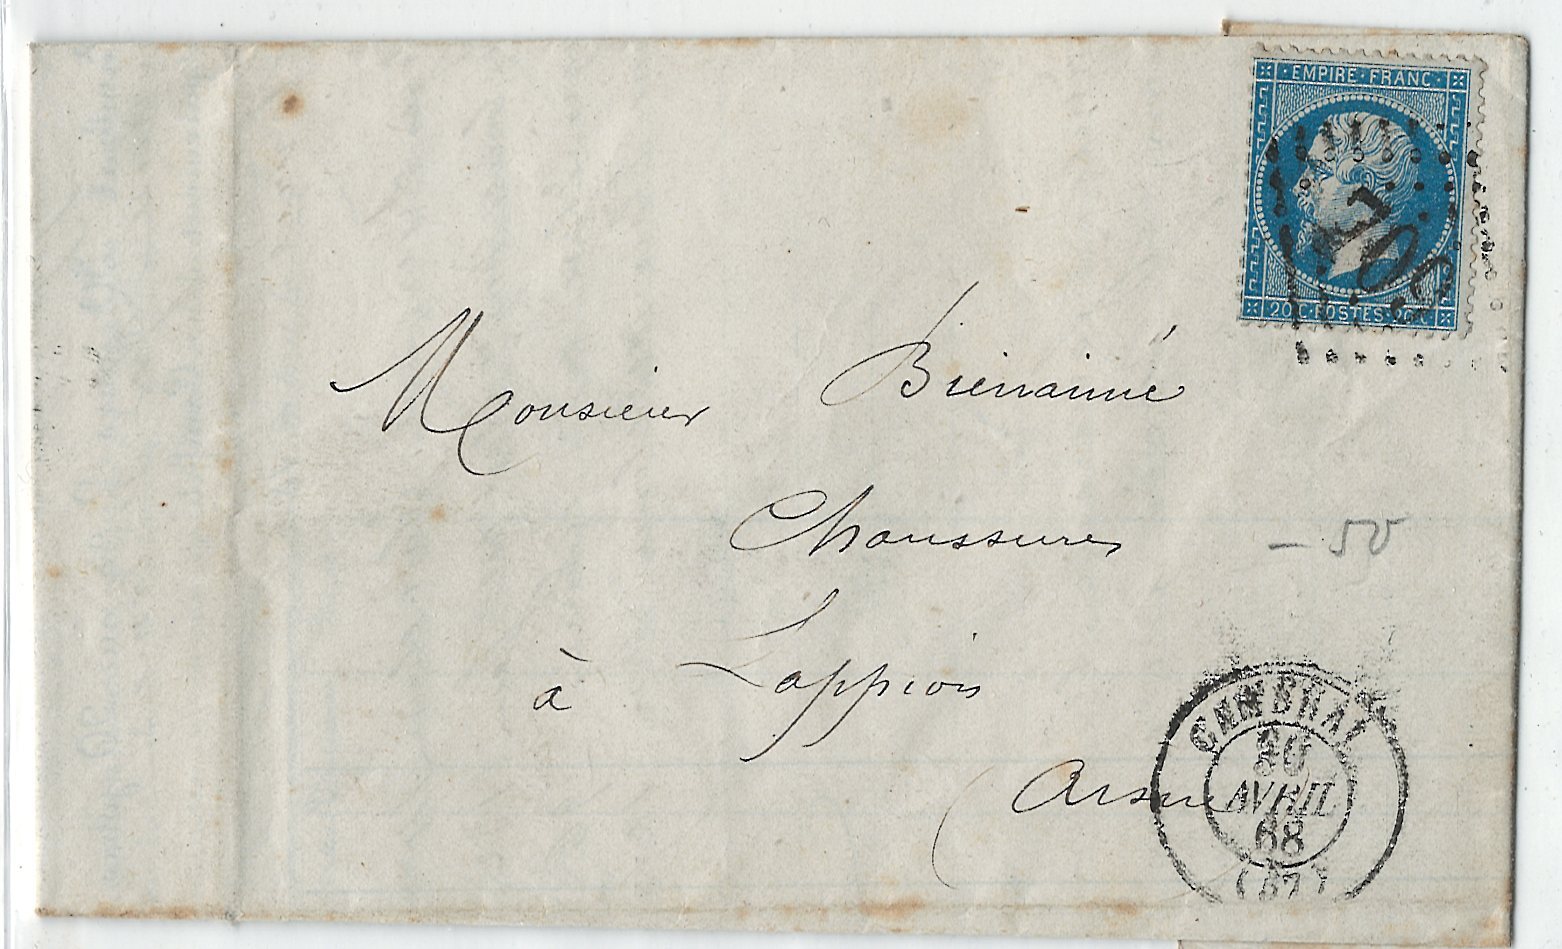 EMPIRE FRANC
709
20 C POSTES 20 C
Monsieur Bienaimé
Chaussures
— 50
à Lappion
(Aisne
CAMBRAI
30
AVRIL
68
(57)